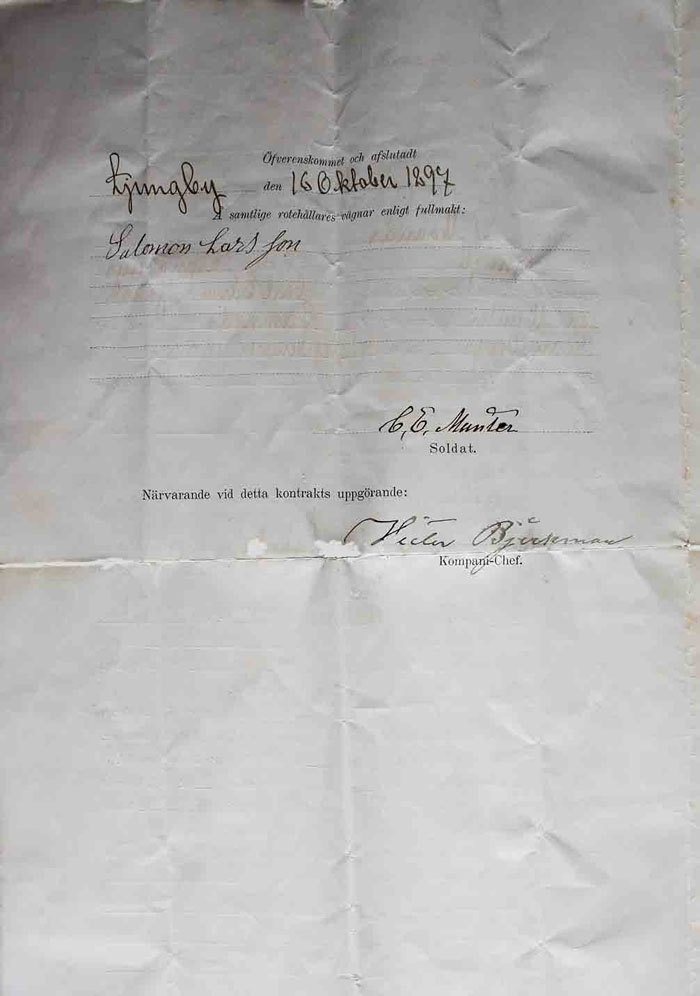 Öfverenskommet och afslutadt
Ljungby den 16 Oktober 1897
Å samtlige rotehållares vägnar enligt fullmakt:
Salomon Larsson
C. E. Munter
Soldat.
Närvarande vid detta kontrakts uppgörande:
Victor Björkman
Kompani-Chef.